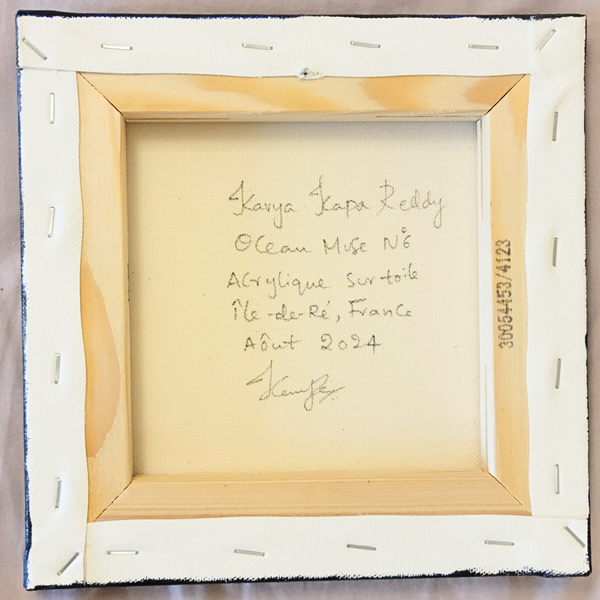 Kavya Kapa Reddy
Ocean Muse N°6
Acrylique sur toile
Île-de-Ré, France
Aôut 2024
30054453/4123